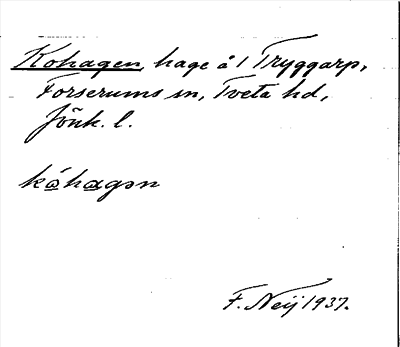 Kohagen, hage å 1 Tryggarp,
Forserums sn, Tveta hd,
Jönk. l.
kóhagən
F. Neij 1937.